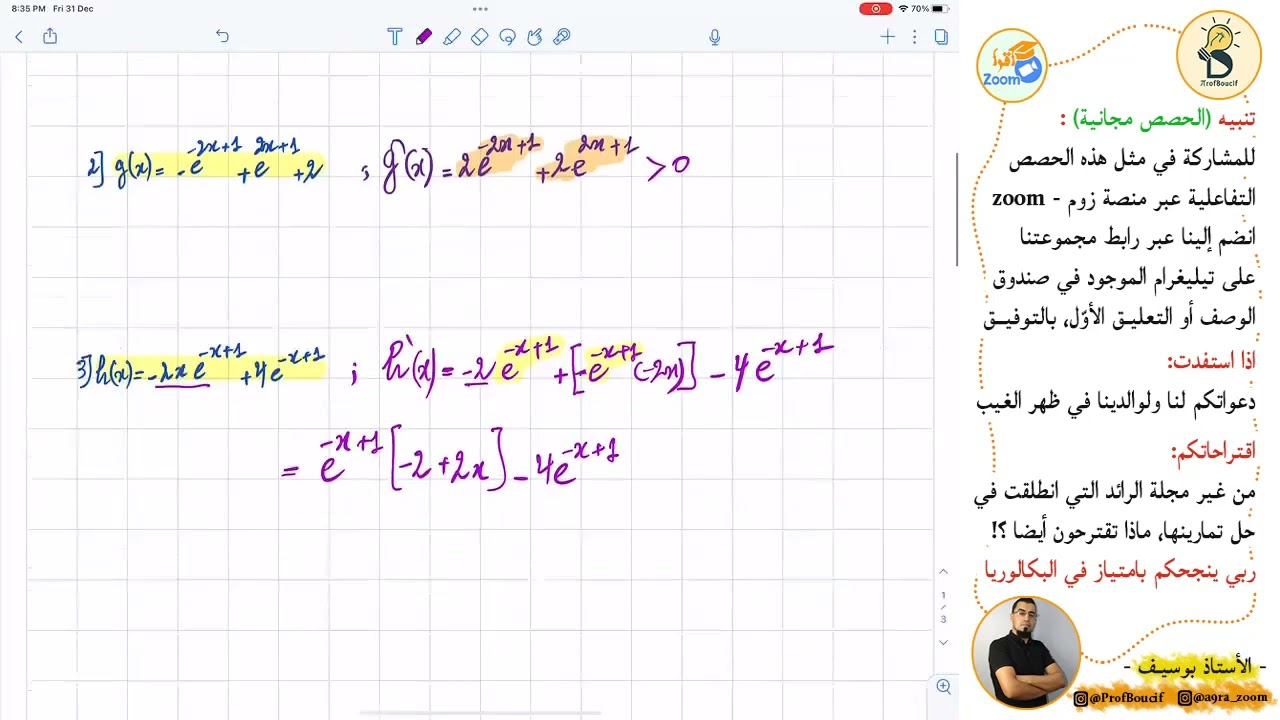 8:35 PM Fri 31 Dec
70%
2] g(x) = -e^{-2x+1} + e^{2x+1} + 2 ; g'(x) = 2e^{-2x+1} + 2e^{2x+1} > 0
3] h(x) = -2x e^{-x+1} + 4e^{-x+1} ; h'(x) = -2 e^{-x+1} + [-e^{-x+1} (-2x)] - 4e^{-x+1}
= e^{-x+1} [-2 + 2x] - 4e^{-x+1}
1
/
3
اقرأ
Zoom
πrofBoucif
تنبيه (الحصص مجانية) :
للمشاركة في مثل هذه الحصص
التفاعلية عبر منصة زوم - zoom
انضم إلينا عبر رابط مجموعتنا
على تيليغرام الموجود في صندوق
الوصف أو التعليق الأوّل، بالتوفيق
اذا استفدت:
دعواتكم لنا ولوالدينا في ظهر الغيب
اقتراحاتكم:
من غير مجلة الرائد التي انطلقت في
حل تمارينها، ماذا تقترحون أيضا ؟!
ربي ينجحكم بامتياز في البكالوريا
- الأستاذ بوسيف -
@ProfBoucif @a9ra_zoom